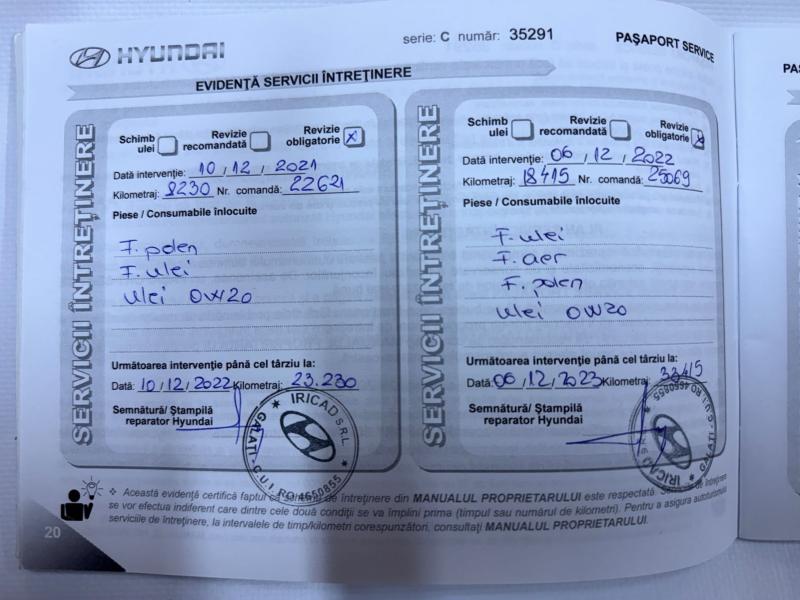 HYUNDAI
serie: C număr: 35291
PAŞAPORT SERVICE
EVIDENŢĂ SERVICII ÎNTREŢINERE
SERVICII ÎNTREŢINERE
Schimb ulei
Revizie recomandată
Revizie obligatorie x
Dată intervenţie: 10 / 12 / 2021
Kilometraj: 8230 Nr. comandă: 22621
Piese / Consumabile înlocuite
F. polen
F. ulei
ulei 0W20
Următoarea intervenţie până cel târziu la:
Dată: 10 / 12 / 2022 Kilometraj: 23.230
Semnătură/ Ştampilă
reparator Hyundai
IRICAD S.R.L.
GALAŢI - C.U.I. RO 4650855
SERVICII ÎNTREŢINERE
Schimb ulei
Revizie recomandată
Revizie obligatorie x
Dată intervenţie: 06 / 12 / 2022
Kilometraj: 18415 Nr. comandă: 25069
Piese / Consumabile înlocuite
F. ulei
F. aer
F. polen
ulei 0W20
Următoarea intervenţie până cel târziu la:
Dată: 06 / 12 / 2023 Kilometraj: 33415
Semnătură/ Ştampilă
reparator Hyundai
IRICAD
GALAŢI - C.U.I. RO 4650855
Această evidenţă certifică faptul că întreţinere din MANUALUL PROPRIETARULUI este respectată. de întreţinere
se vor efectua indiferent care dintre cele două condiţii se va împlini prima (timpul sau numărul de kilometri). Pentru a asigura autoturismului
serviciile de întreţinere, la intervalele de timp/kilometri corespunzători, consultaţi MANUALUL PROPRIETARULUI.
20
PAŞ